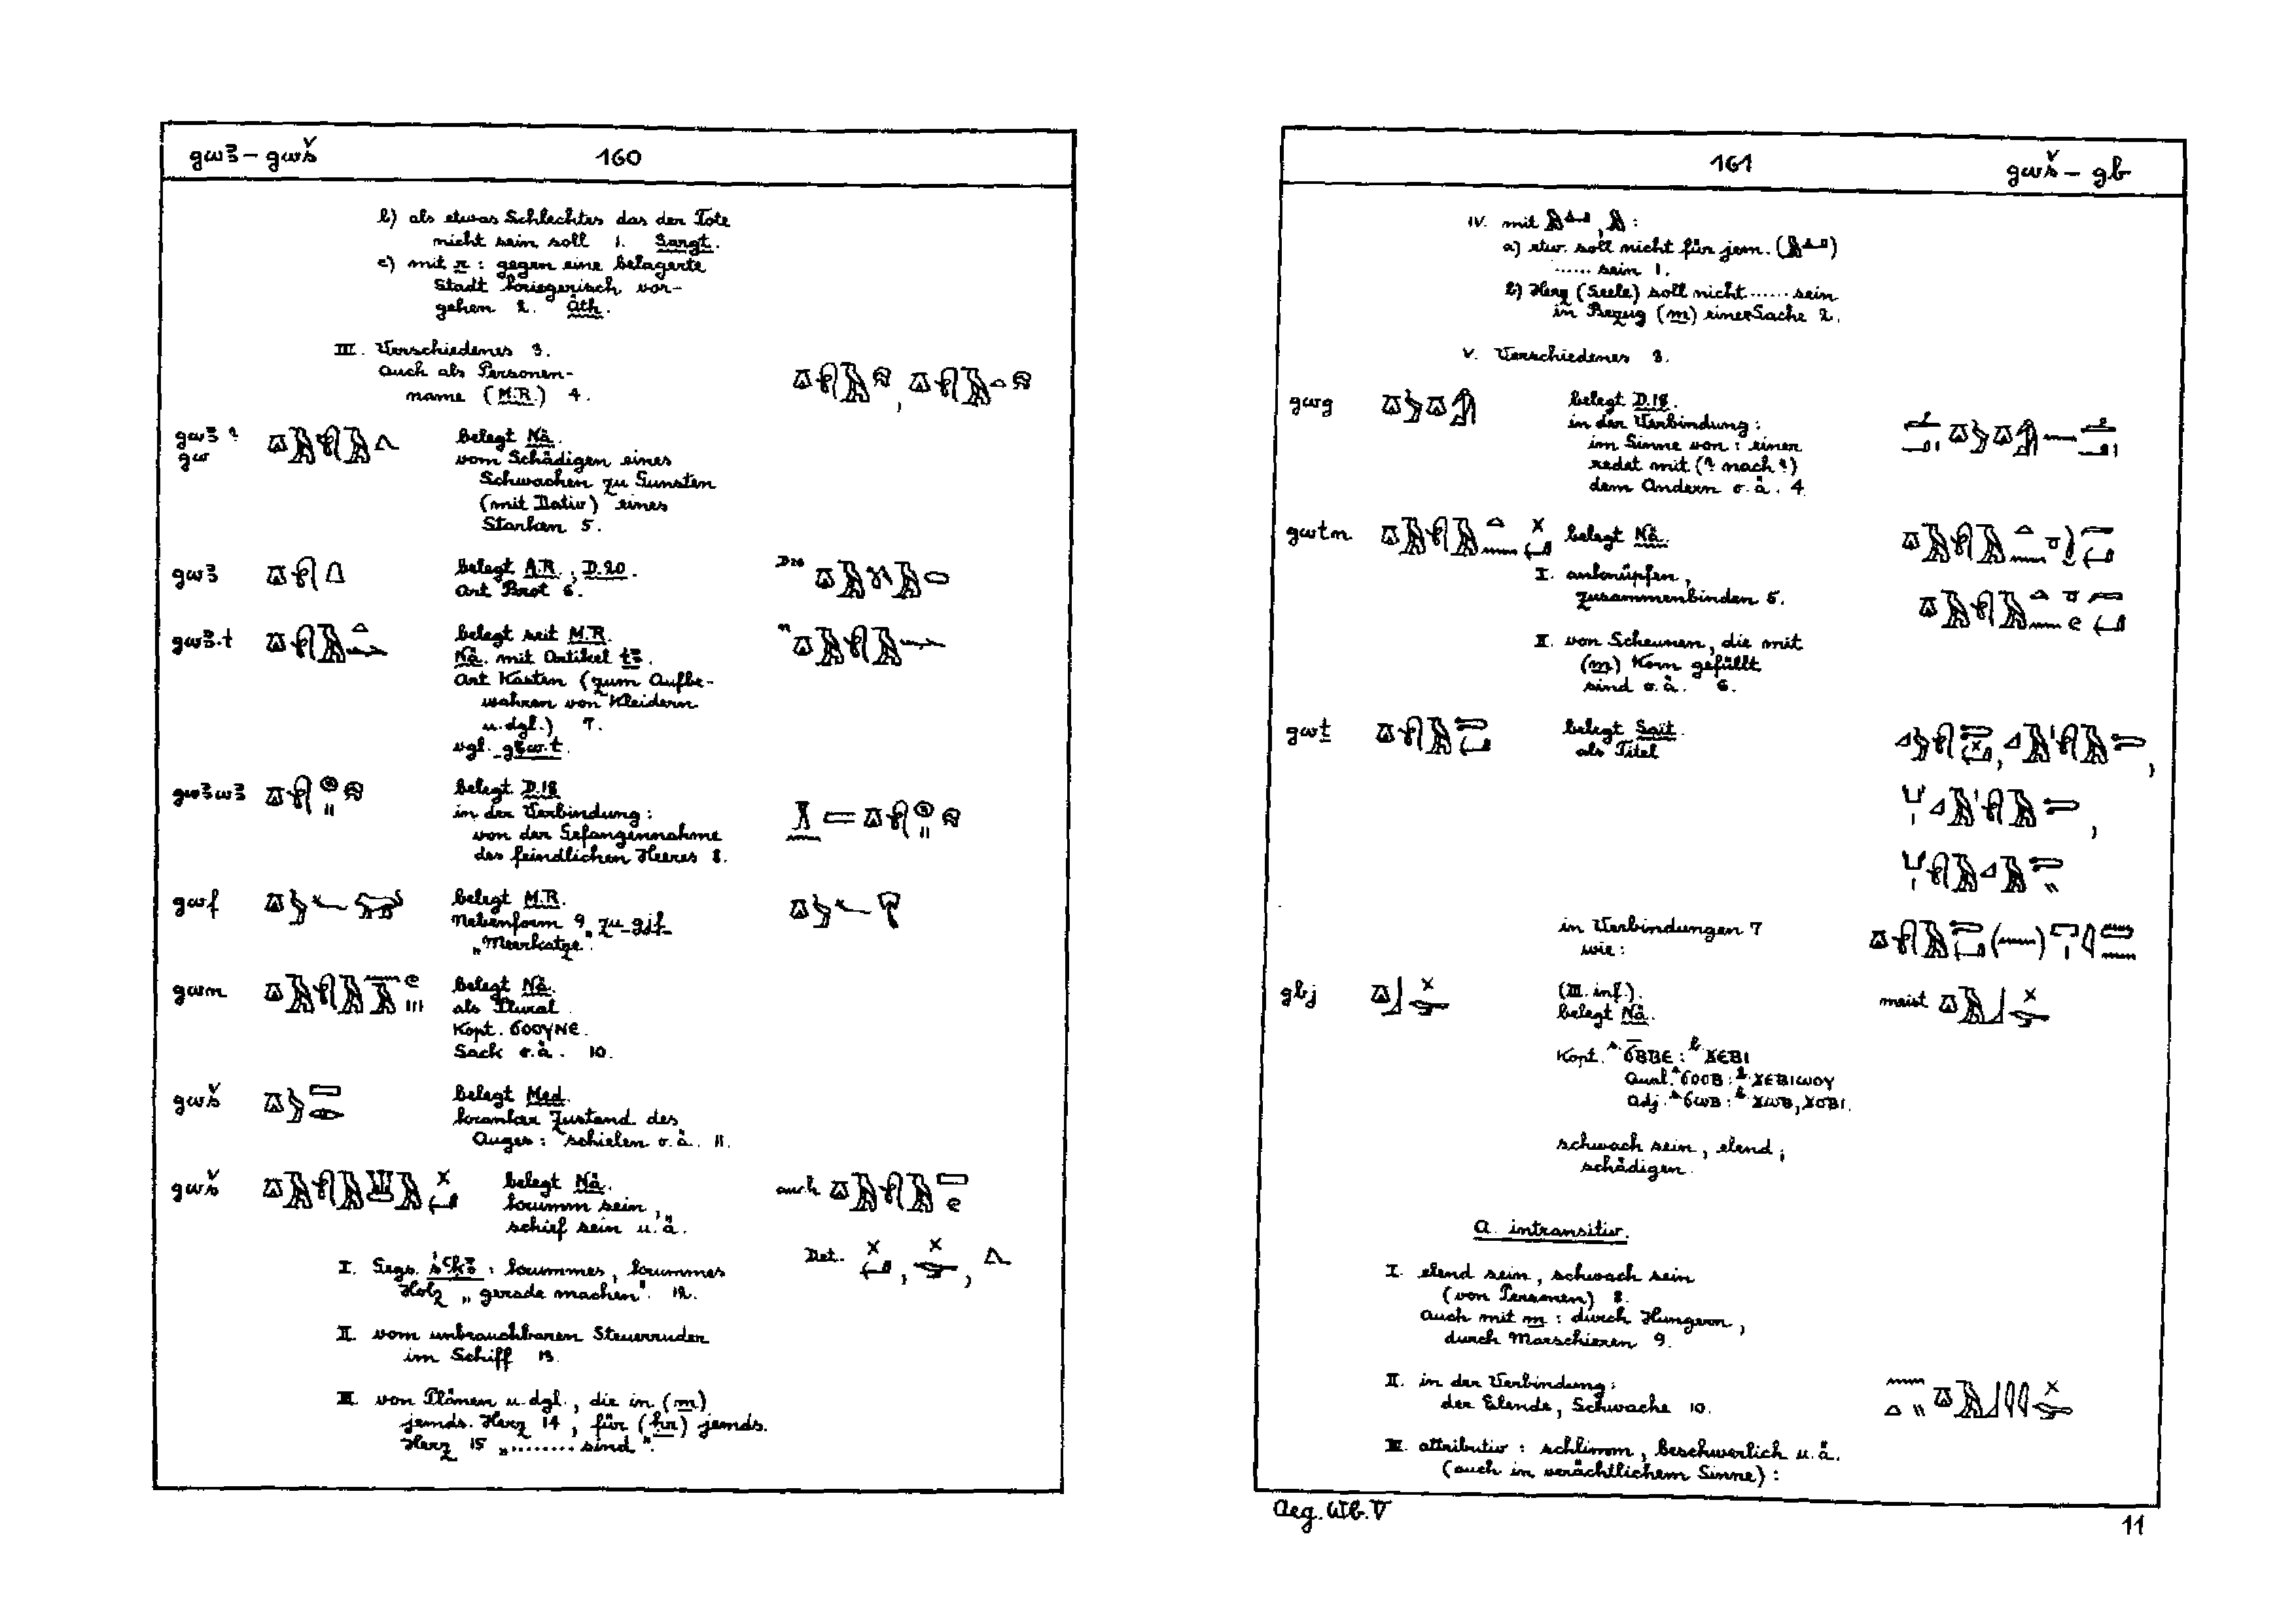 gwꜣ – gwš 160
b) als etwas Schlechtes das der Tote
nicht sein soll 1. Sargt.
c) mit r : gegen eine belagerte
Stadt kriegerisch vor-
gehen 2. Äth.
III. Verschiedenes 3.
auch als Personen-
name (M.R.) 4.
gwꜣ ? belegt Nä.
gw vom Schädigen eines
Schwachen zu Gunsten
(mit Dativ) eines
Starken 5.
gwꜣ belegt A.R., D.20. D20
Art Brot 6.
gwꜣ.t belegt seit M.R.
Nä. mit Artikel tꜣ.
Art Kasten (zum Aufbe-
wahren von Kleidern
u. dgl.) 7.
vgl. gꜣw.t.
gwꜣwꜣ belegt D.18
in der Verbindung :
von der Gefangennahme
des feindlichen Heeres 8.
gwf belegt M.R.
Nebenform 9 zu gjf
„Meerkatze".
gwn belegt Nä.
als Plural
Kopt. ϭοογνε.
Sack o.ä. 10.
gwš belegt Med.
kranker Zustand des
Auges : schielen o.ä. 11.
gwš belegt Nä. auch
krumm sein,
schief sein u.ä.
Det.
I. Gegs. : krummes, krummes
Holz „gerade machen". 12.
II. vom unbrauchbaren Steuerruder
im Schiff 13.
III. von Plänen u. dgl., die in (m)
jemds. Herz 14, für (hr) jemds.
Herz 15 „........ sind".
161 gwš – gb
IV. mit , :
a) etw. soll nicht für jem. ( )
...... sein 1.
b) Herz (Seele) soll nicht ...... sein
in Bezug (m) einer Sache 2.
V. Verschiedenes 3.
gwg belegt D.18.
in der Verbindung :
im Sinne von : einer
redet mit (? nach ?)
dem Andern o.ä. 4
gwtn belegt Nä.
I. anknüpfen,
zusammenbinden 5.
II. von Scheunen, die mit
(m) Korn gefüllt
sind o.ä. 6.
gwṯ belegt Sait.
als Titel
in Verbindungen 7
wie :
gbj (III. inf.). meist
belegt Nä.
Kopt. s. ϭⲃⲃⲉ : b. ϫⲉⲃⲓ
Qual. s. ϭⲟⲟⲃ : b. ϫⲉⲃⲓⲱⲟⲩ
Adj. s. ϭⲱⲃ : b. ϫⲱⲃ, ϫⲟⲃⲓ.
schwach sein, elend ;
schädigen.
A. intransitiv.
I. elend sein, schwach sein
(von Personen) 8.
auch mit m : durch Hungern,
durch Marschieren 9.
II. in der Verbindung :
der Elende, Schwache 10.
III. attributiv : schlimm, beschwerlich u.ä.
(auch in verächtlichem Sinne) :
Aeg. Wb. V
11